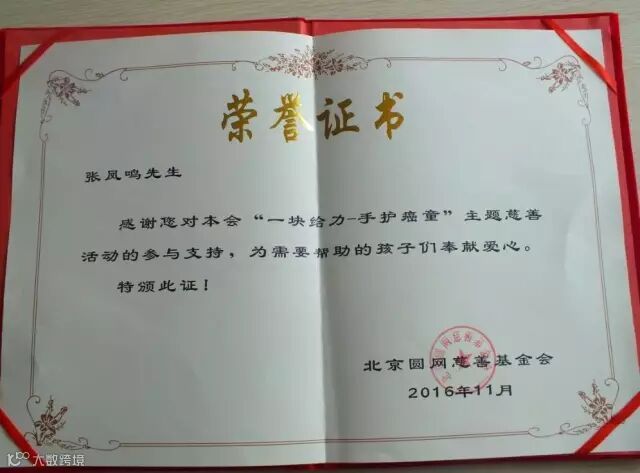 荣誉证书
张凤鸣先生
感谢您对本会“一块给力-手护癌童”主题慈善
活动的参与支持，为需要帮助的孩子们奉献爱心。
特颁此证！
北京圆网慈善基金会
2016年11月
大数跨境